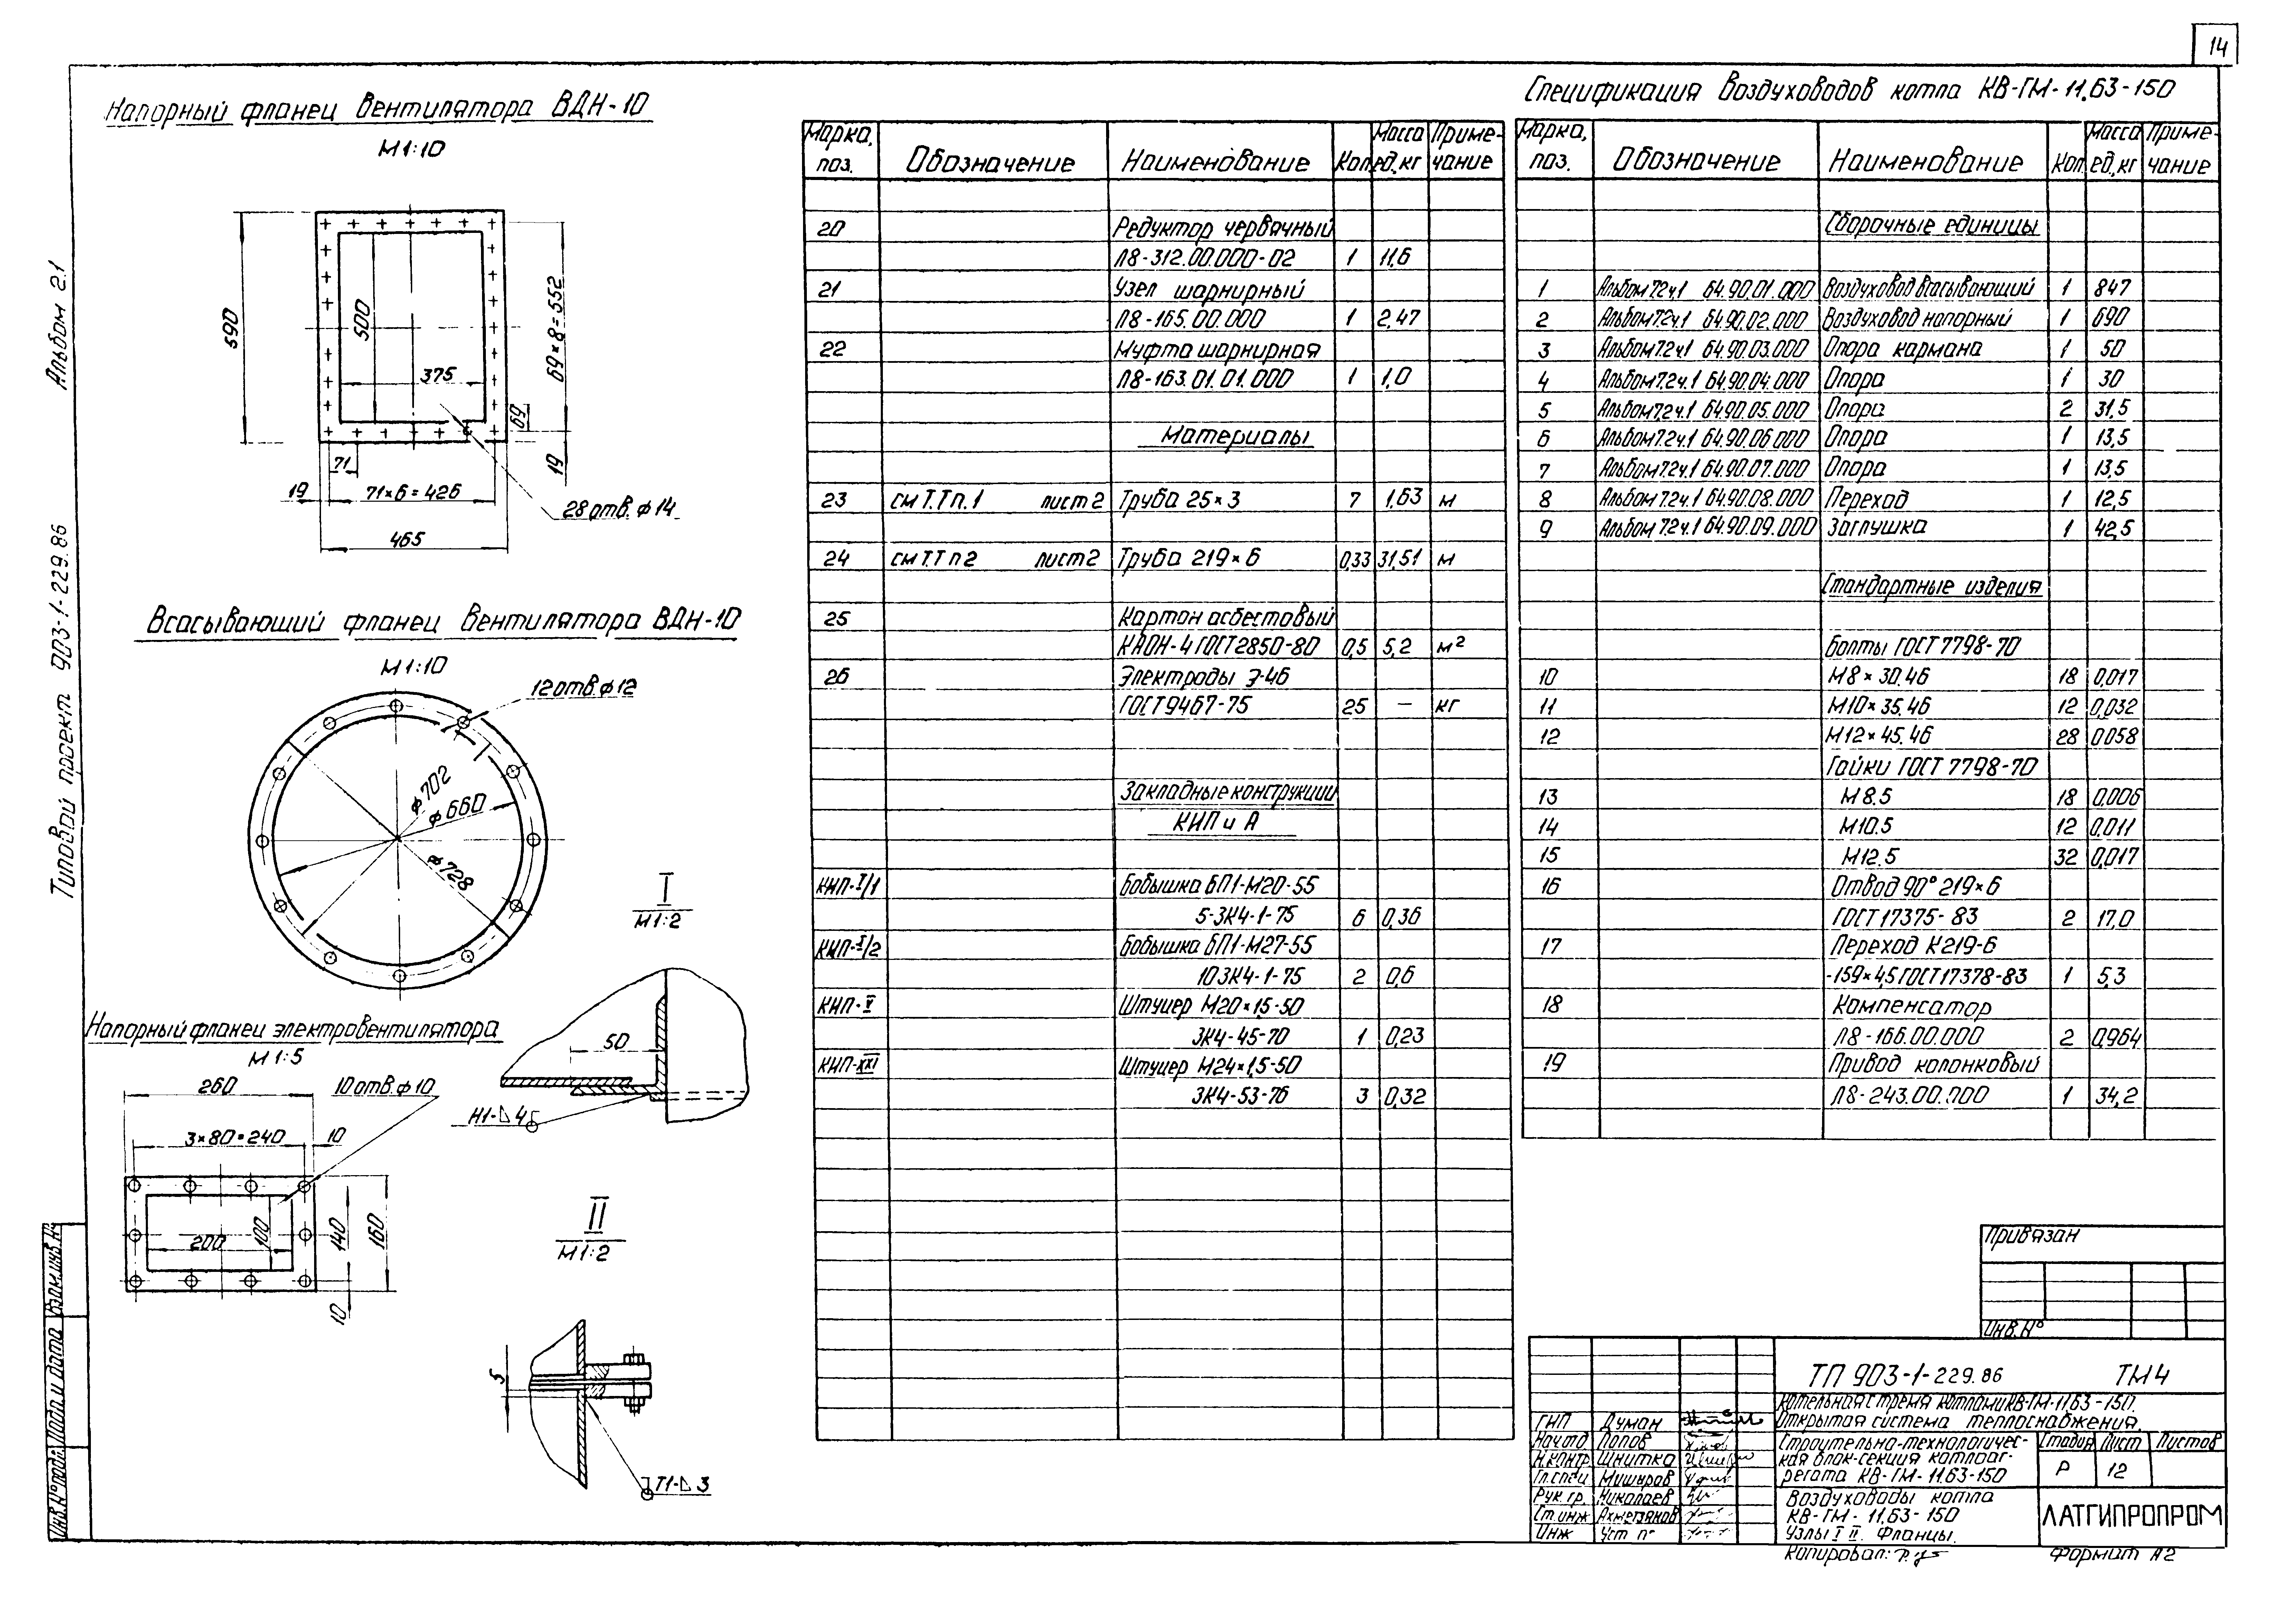 14
Напорный фланец вентилятора ВДН-10
М1:10
590
500
375
69×8=552
69
19
71
19
71×6=426
465
28 отв. ф14
Всасывающий фланец вентилятора ВДН-10
М1:10
12 отв. ф12
ф702
ф660
ф728
Напорный фланец электровентилятора
М1:5
260
10 отв ф10
3×80=240
10
200
100
140
160
10
I
М1:2
50
Н1-⊿4
II
М1:2
5
Т1-⊿3
Альбом 2.1
Типовой проект 903-1-229.86
Взам.инв.№
Подп. и дата
Инв.№подл.
Марка, поз. Обозначение Наименование Кол. Масса ед.,кг Приме-чание
20 Редуктор червячный
Л8-312.00.000-02 1 11,6
21 Узел шарнирный
Л8-165.00.000 1 2,47
22 Муфта шарнирная
Л8-163.01.01.000 1 1,0
Материалы
23 см Т.Т п.1 лист 2 Труба 25×3 7 1,63 м
24 см Т.Т п 2 лист 2 Труба 219×6 0,33 31,51 м
25 Картон асбестовый
КАОН-4 ГОСТ 2850-80 0,5 5,2 м²
26 Электроды Э-46
ГОСТ 9467-75 25 — кг
Закладные конструкции
КИП и А
КИП-I/1 Бобышка БП1-М20-55
5-ЗК4-1-75 6 0,36
КИП-I/2 Бобышка БП1-М27-55
10ЗК4-1-75 2 0,6
КИП-V Штуцер М20×1,5-50
ЗК4-45-70 1 0,23
КИП-XXI Штуцер М24×1,5-50
ЗК4-53-76 3 0,32
Спецификация воздуховодов котла КВ-ГМ-11,63-150
Марка, поз. Обозначение Наименование Кол. Масса ед.,кг Приме-чание
Сборочные единицы
1 Альбом 7.2 ч.1 64.90.01.000 Воздуховод всасывающий 1 847
2 Альбом 7.2 ч.1 64.90.02.000 Воздуховод напорный 1 690
3 Альбом 7.2 ч1 64.90.03.000 Опора кармана 1 50
4 Альбом 7.2 ч.1 64.90.04.000 Опора 1 30
5 Альбом 7.2 ч.1 64.90.05.000 Опора 2 31,5
6 Альбом 7.2 ч.1 64.90.06.000 Опора 1 13,5
7 Альбом 7.2 ч.1 64.90.07.000 Опора 1 13,5
8 Альбом 7.2 ч.1 64.90.08.000 Переход 1 12,5
9 Альбом 7.2 ч.1 64.90.09.000 Заглушка 1 42,5
Стандартные изделия
Болты ГОСТ 7798-70
10 М8×30.46 18 0,017
11 М10×35.46 12 0,032
12 М12×45.46 28 0,058
Гайки ГОСТ 7798-70
13 М8.5 18 0,006
14 М10.5 12 0,011
15 М12.5 32 0,017
16 Отвод 90° 219×6
ГОСТ 17375-83 2 17,0
17 Переход К219-6
-159×4,5 ГОСТ 17378-83 1 5,3
18 Компенсатор
Л8-166.00.000 2 0,964
19 Привод колонковый
Л8-243.00.000 1 34,2
Привязан
Инв.№
ТП 903-1-229.86 ТМ4
Котельная с тремя котлами КВ-ГМ-11,63-150.
Открытая система теплоснабжения.
Строительно-технологичес-
кая блок-секция котлоаг-
регата КВ-ГМ-11,63-150
Стадия Лист Листов
Р 12
Воздуховоды котла
КВ-ГМ-11,63-150
Узлы I II. Фланцы.
ЛАТГИПРОПРОМ
ГИП Думан
Нач.отд Попов
Н.контр Шнитка
Гл.спец
Рук.гр. Николаев
Ст.инж Ахметзянов
Инж
Копировал:
Формат А2